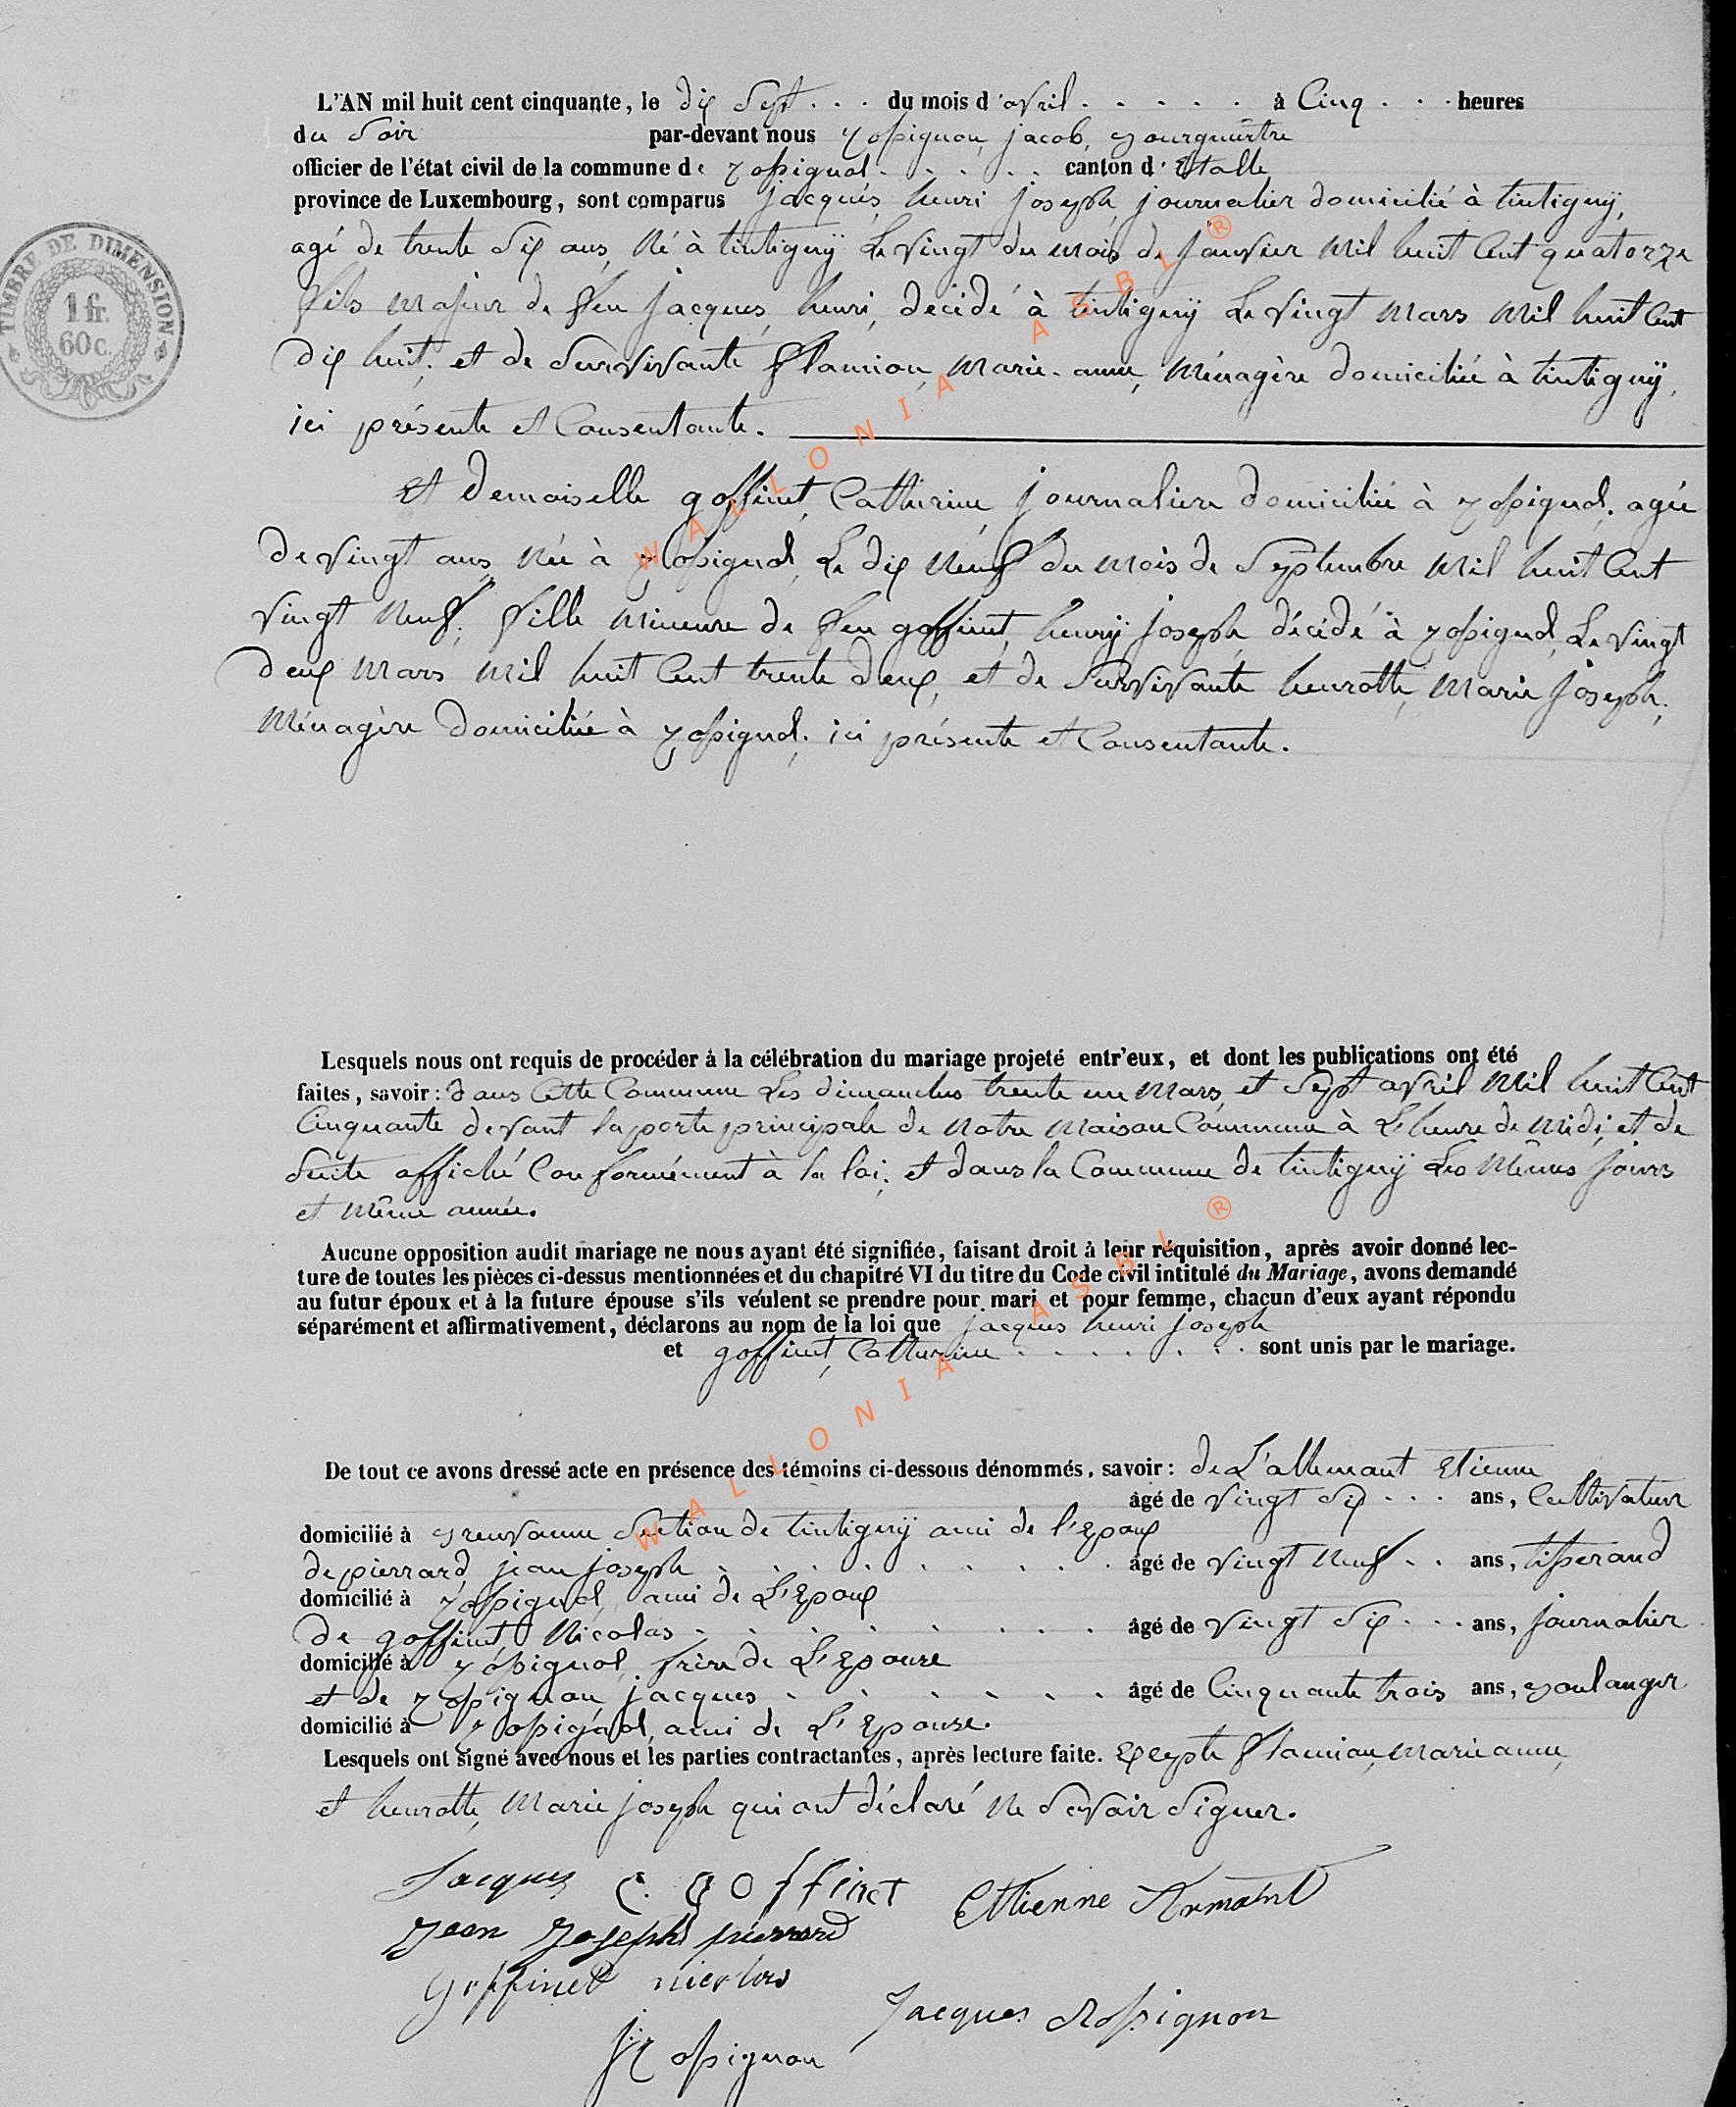 L'AN mil huit cent cinquante, le dix Sept . . . du mois d'avril . . . . . à Cinq . . . heures
du Soir par-devant nous rossignon, jacob, Bourgmestre
officier de l'état civil de la commune de rossignol . . . . . canton d'Etalle,
province de Luxembourg, sont comparus jacques, henri joseph, journalier domicilié à tintigny,
agé de trente Six ans, Né à tintigny Le vingt du mois de janvier Mil huit Cent quatorze
fils Majeur de feu jacques, henri, décidé à tintigny Le vingt Mars Mil huit Cent
dix huit; et de Survivante flamion, Marie-anne, Ménagère domiciliée à tintigny,
ici présente et Consentante.
Et demoiselle goffinet, Catherine journalière domiciliée à rossignol, agée
de vingt ans, Née à rossignol, Le dix Neuf du Mois de Septembre Mil huit Cent
vingt Neuf; fille Mineure de feu goffinet, henry joseph, décédé à rossignol, Le vingt
deux Mars Mil huit Cent trente deux, et de Survivante henrotte, Marie joseph,
Ménagère domiciliée à rossignol, ici présente et Consentante.
TIMBRE DE DIMENSION
1 fr.
60 c.
Lesquels nous ont requis de procéder à la célébration du mariage projeté entr'eux, et dont les publications ont été
faites, savoir: dans Cette Commune Les dimanches trente un Mars, et Sept avril Mil huit Cent
Cinquante devant la porte principale de Notre Maison Commune à L'heure de Midi, et de
Suite affiché Conformément à la loi; et dans la Commune de tintigny Les Mêmes jours
et Même année.
Aucune opposition audit mariage ne nous ayant été signifiée, faisant droit à leur réquisition, après avoir donné lec-
ture de toutes les pièces ci-dessus mentionnées et du chapitré VI du titre du Code civil intitulé du Mariage, avons demandé
au futur époux et à la future épouse s'ils veulent se prendre pour mari et pour femme, chacun d'eux ayant répondu
séparément et affirmativement, déclarons au nom de la loi que jacques henri joseph
et goffinet, Catherine . . . . . . . . sont unis par le mariage.
De tout ce avons dressé acte en présence des témoins ci-dessous dénommés, savoir: de L'allemant Etienne
âgé de vingt Six . . . ans, Cultivateur
domicilié à Breuvanne Section de tintigny ami de l'Epoux
de pierrard, jean joseph . . . . . . . . âgé de vingt Neuf . . ans, tisserand
domicilié à rossignol, ami de L'Epoux
de goffinet, Nicolas . . . . . . . . âgé de vingt Six . . . ans, journalier
domicilié à rossignol, frère de L'Epouse
et de rossignon, jacques . . . . . . . âgé de Cinquante trois ans, Boulanger
domicilié à rossignol, ami de L'Epouse.
Lesquels ont signé avec nous et les parties contractantes, après lecture faite. Excepté flamion, Marie anne,
et henrotte, Marie joseph qui ont déclaré Ne Savoir Signer.
Jacques C. GOffinet Ettienne
Jean Joseph pierrard
goffinet nicolas
Jacques Rossignon
J Rossignon
WALLONIA ASBL ®
WALLONIA ASBL ®